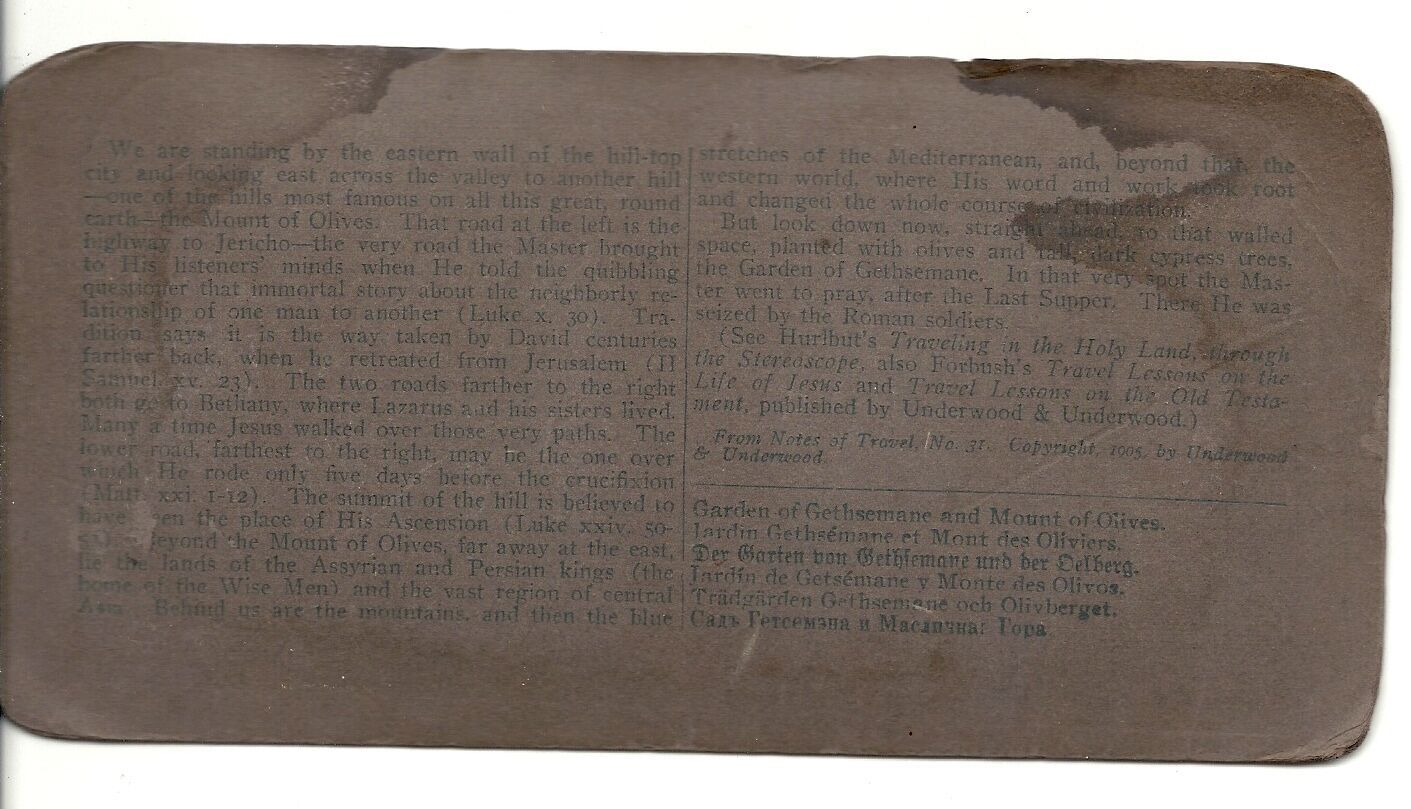 We are standing by the eastern wall of the hill-top
city and looking east across the valley to another hill
—one of the hills most famous on all this great, round
earth—the Mount of Olives. That road at the left is the
highway to Jericho—the very road the Master brought
to His listeners' minds when He told the quibbling
questioner that immortal story about the neighborly re-
lationship of one man to another (Luke x. 30). Tra-
dition says it is the way taken by David centuries
farther back, when he retreated from Jerusalem (II
Samuel xv. 23). The two roads farther to the right
both go to Bethany, where Lazarus and his sisters lived.
Many a time Jesus walked over those very paths. The
lower road, farthest to the right, may be the one over
which He rode only five days before the crucifixion
(Matt. xxi. 1-12). The summit of the hill is believed to
have been the place of His Ascension (Luke xxiv. 50-
Beyond the Mount of Olives, far away at the east,
lie the lands of the Assyrian and Persian kings (the
home of the Wise Men) and the vast region of central
Asia. Behind us are the mountains, and then the blue
stretches of the Mediterranean, and, beyond that, the
western world, where His word and work took root
and changed the whole course of civilization.
But look down now, straight ahead, to that walled
space, planted with olives and tall, dark cypress trees,
the Garden of Gethsemane. In that very spot the Mas-
ter went to pray, after the Last Supper. There He was
seized by the Roman soldiers.
(See Hurlbut's Traveling in the Holy Land, through
the Stereoscope, also Forbush's Travel Lessons on the
Life of Jesus and Travel Lessons on the Old Testa-
ment, published by Underwood & Underwood.)
From Notes of Travel, No. 31. Copyright, 1905, by Underwood
& Underwood.
Garden of Gethsemane and Mount of Olives.
Jardin Gethsémane et Mont des Oliviers.
Der Garten von Gethsemane und der Oelberg.
Jardín de Getsémane y Monte des Olivos.
Trädgården Gethsemane och Olivberget.
Садъ Гетсемэна и Масличная Гора